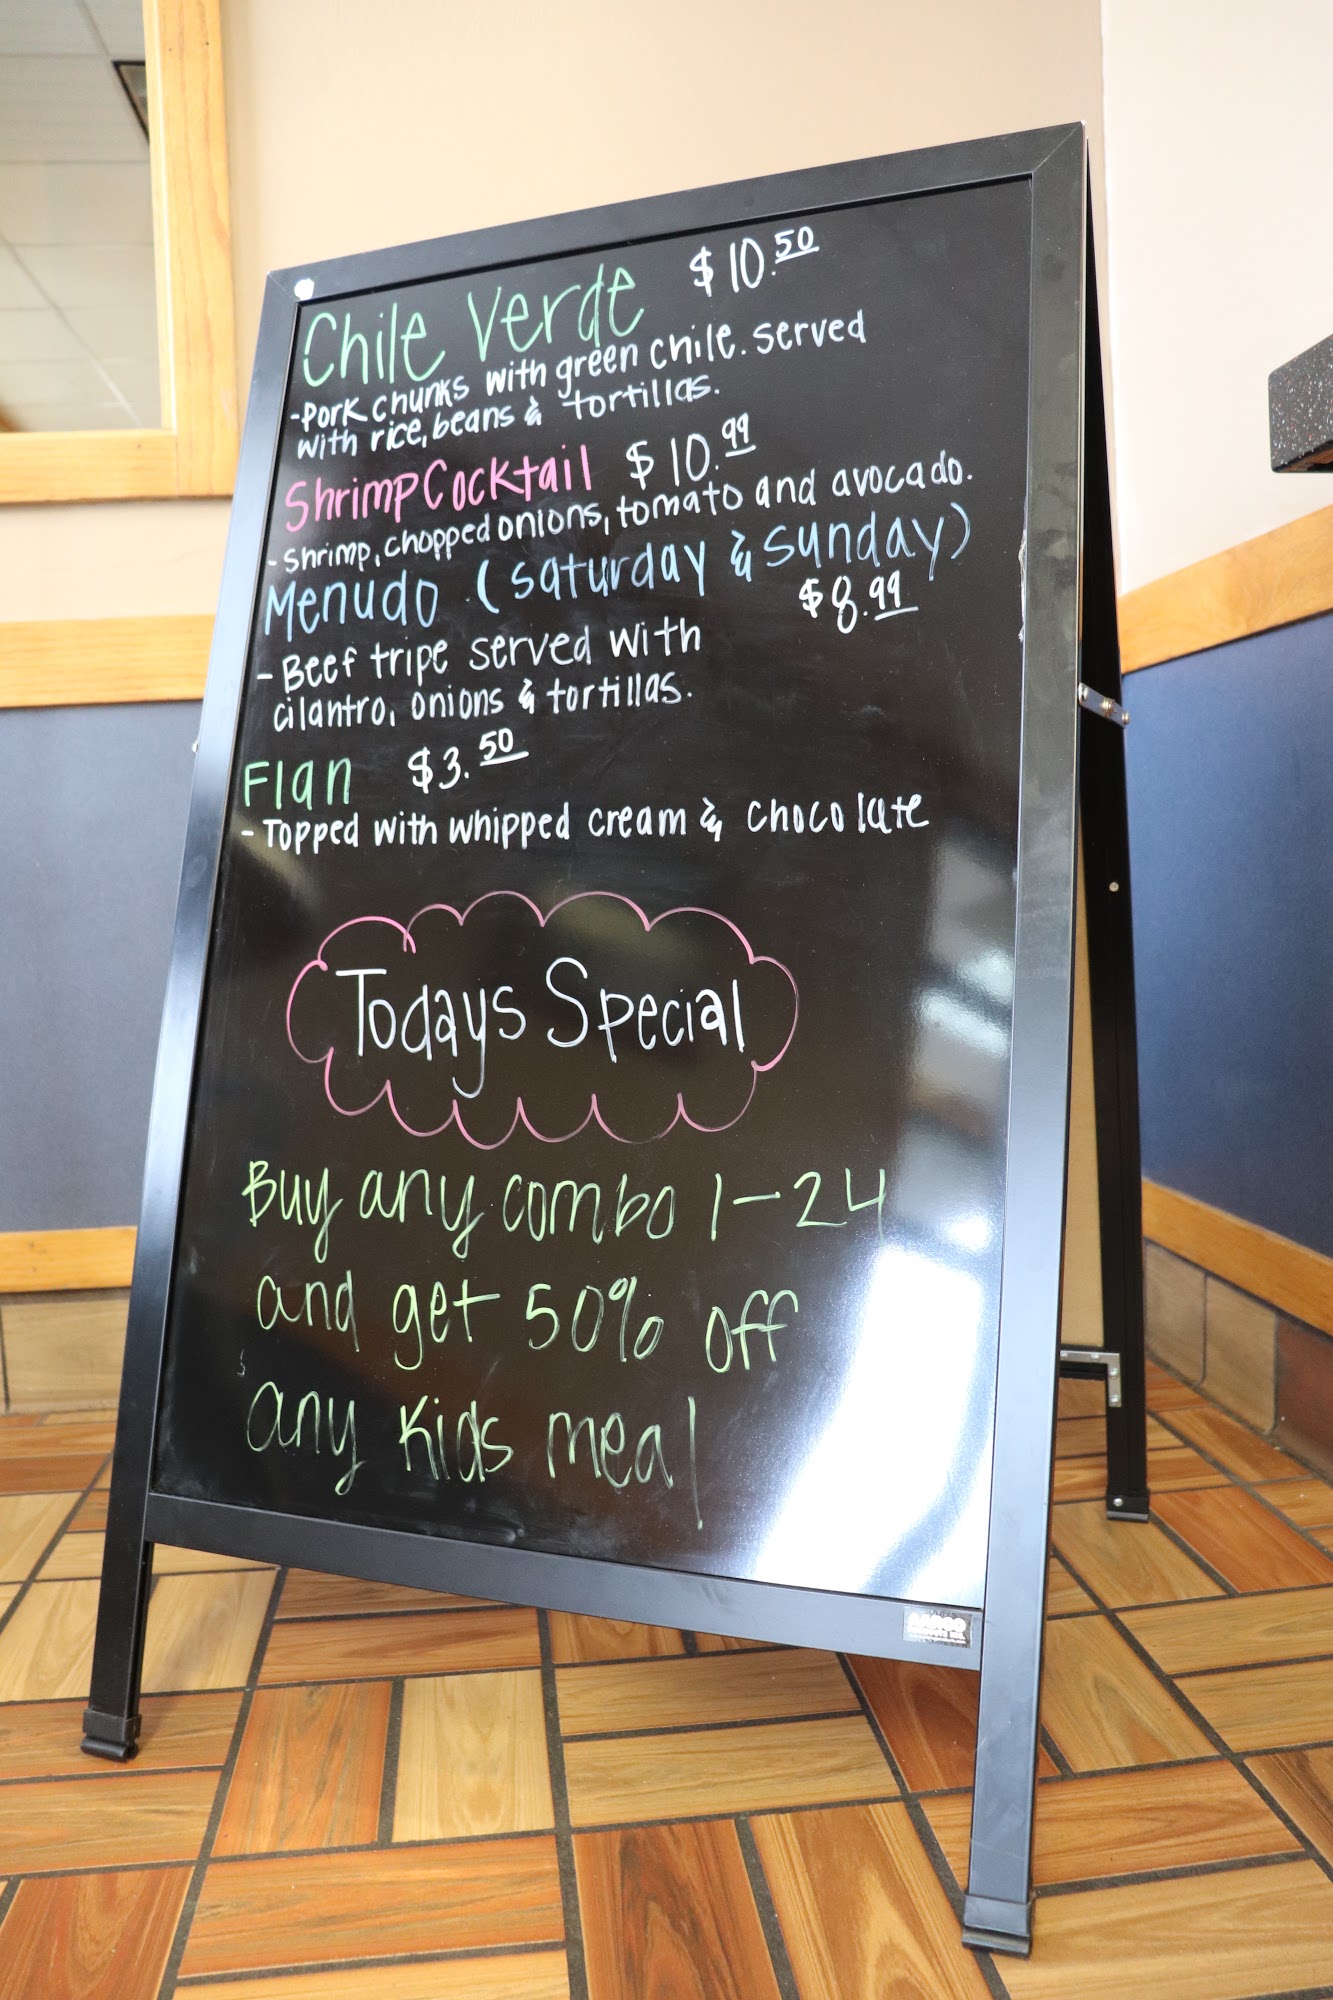 Chile Verde $10.50
-Pork chunks with green chile. served
with rice, beans & tortillas.
Shrimp Cocktail $10.99
- shrimp, chopped onions, tomato and avocado.
Menudo (Saturday & Sunday)
$8.99
- Beef tripe served with
cilantro, onions & tortillas.
Flan $3.50
- Topped with whipped cream & chocolate
Todays Special
Buy any combo 1-24
and get 50% off
any kids meal